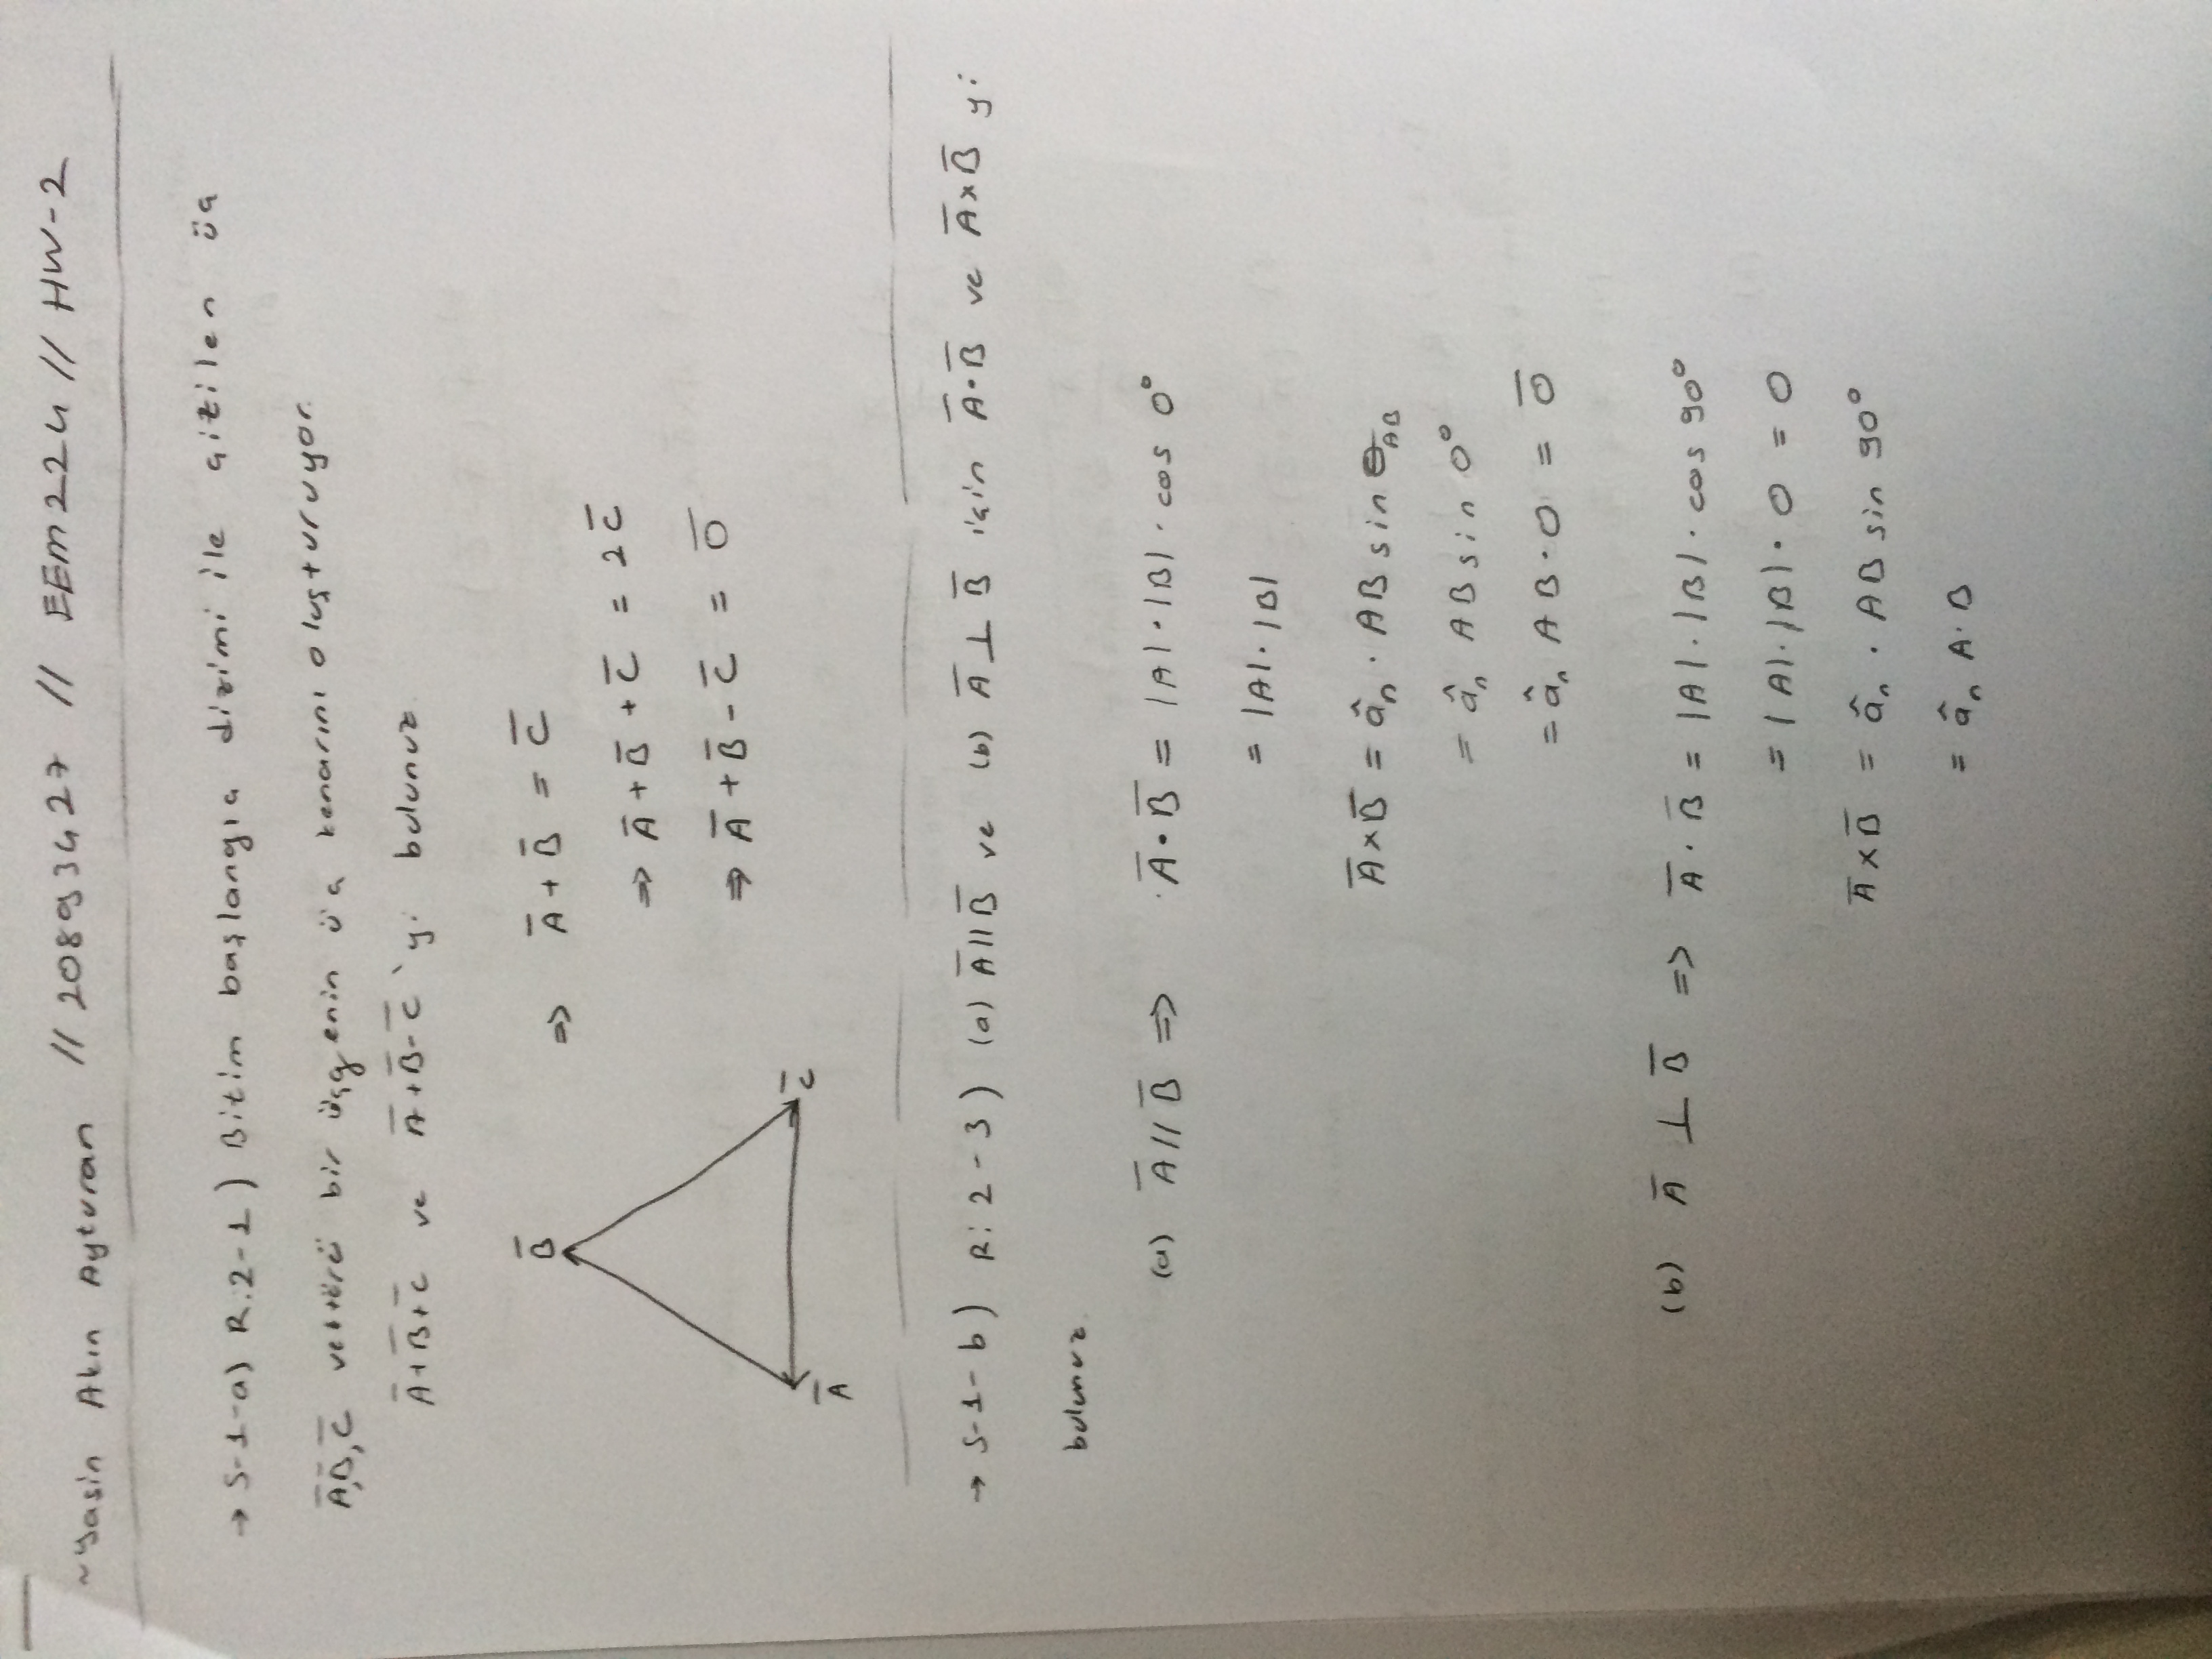 ~Yasin Akın Ayturan // 20893427 // EEM224 // HW-2
→ S-1-a) R.2-1) Bitim başlangıç dizimi ile çizilen üç
A̅,B̅,C̅ vektörü bir üçgenin üç kenarını oluşturuyor.
A̅+B̅+C̅ ve A̅+B̅-C̅ 'yi bulunuz
B̅
⇒ A̅+B̅ = C̅
⇒ A̅+B̅+C̅ = 2C̅
⇒ A̅+B̅-C̅ = 0̅
A̅ C̅
→ S-1-b) R:2-3) (a) A̅//B̅ ve (b) A̅⊥B̅ için A̅·B̅ ve A̅×B̅ yi
bulunuz.
(a) A̅//B̅ ⇒ A̅·B̅ = |A|·|B|·cos 0°
= |A|·|B|
A̅×B̅ = âₙ · AB sin θ_AB
= âₙ AB sin 0°
= âₙ AB·0 = 0̅
(b) A̅ ⊥ B̅ ⇒ A̅·B̅ = |A|·|B|·cos 90°
= |A|·|B|·0 = 0
A̅×B̅ = âₙ · AB sin 90°
= âₙ A·B